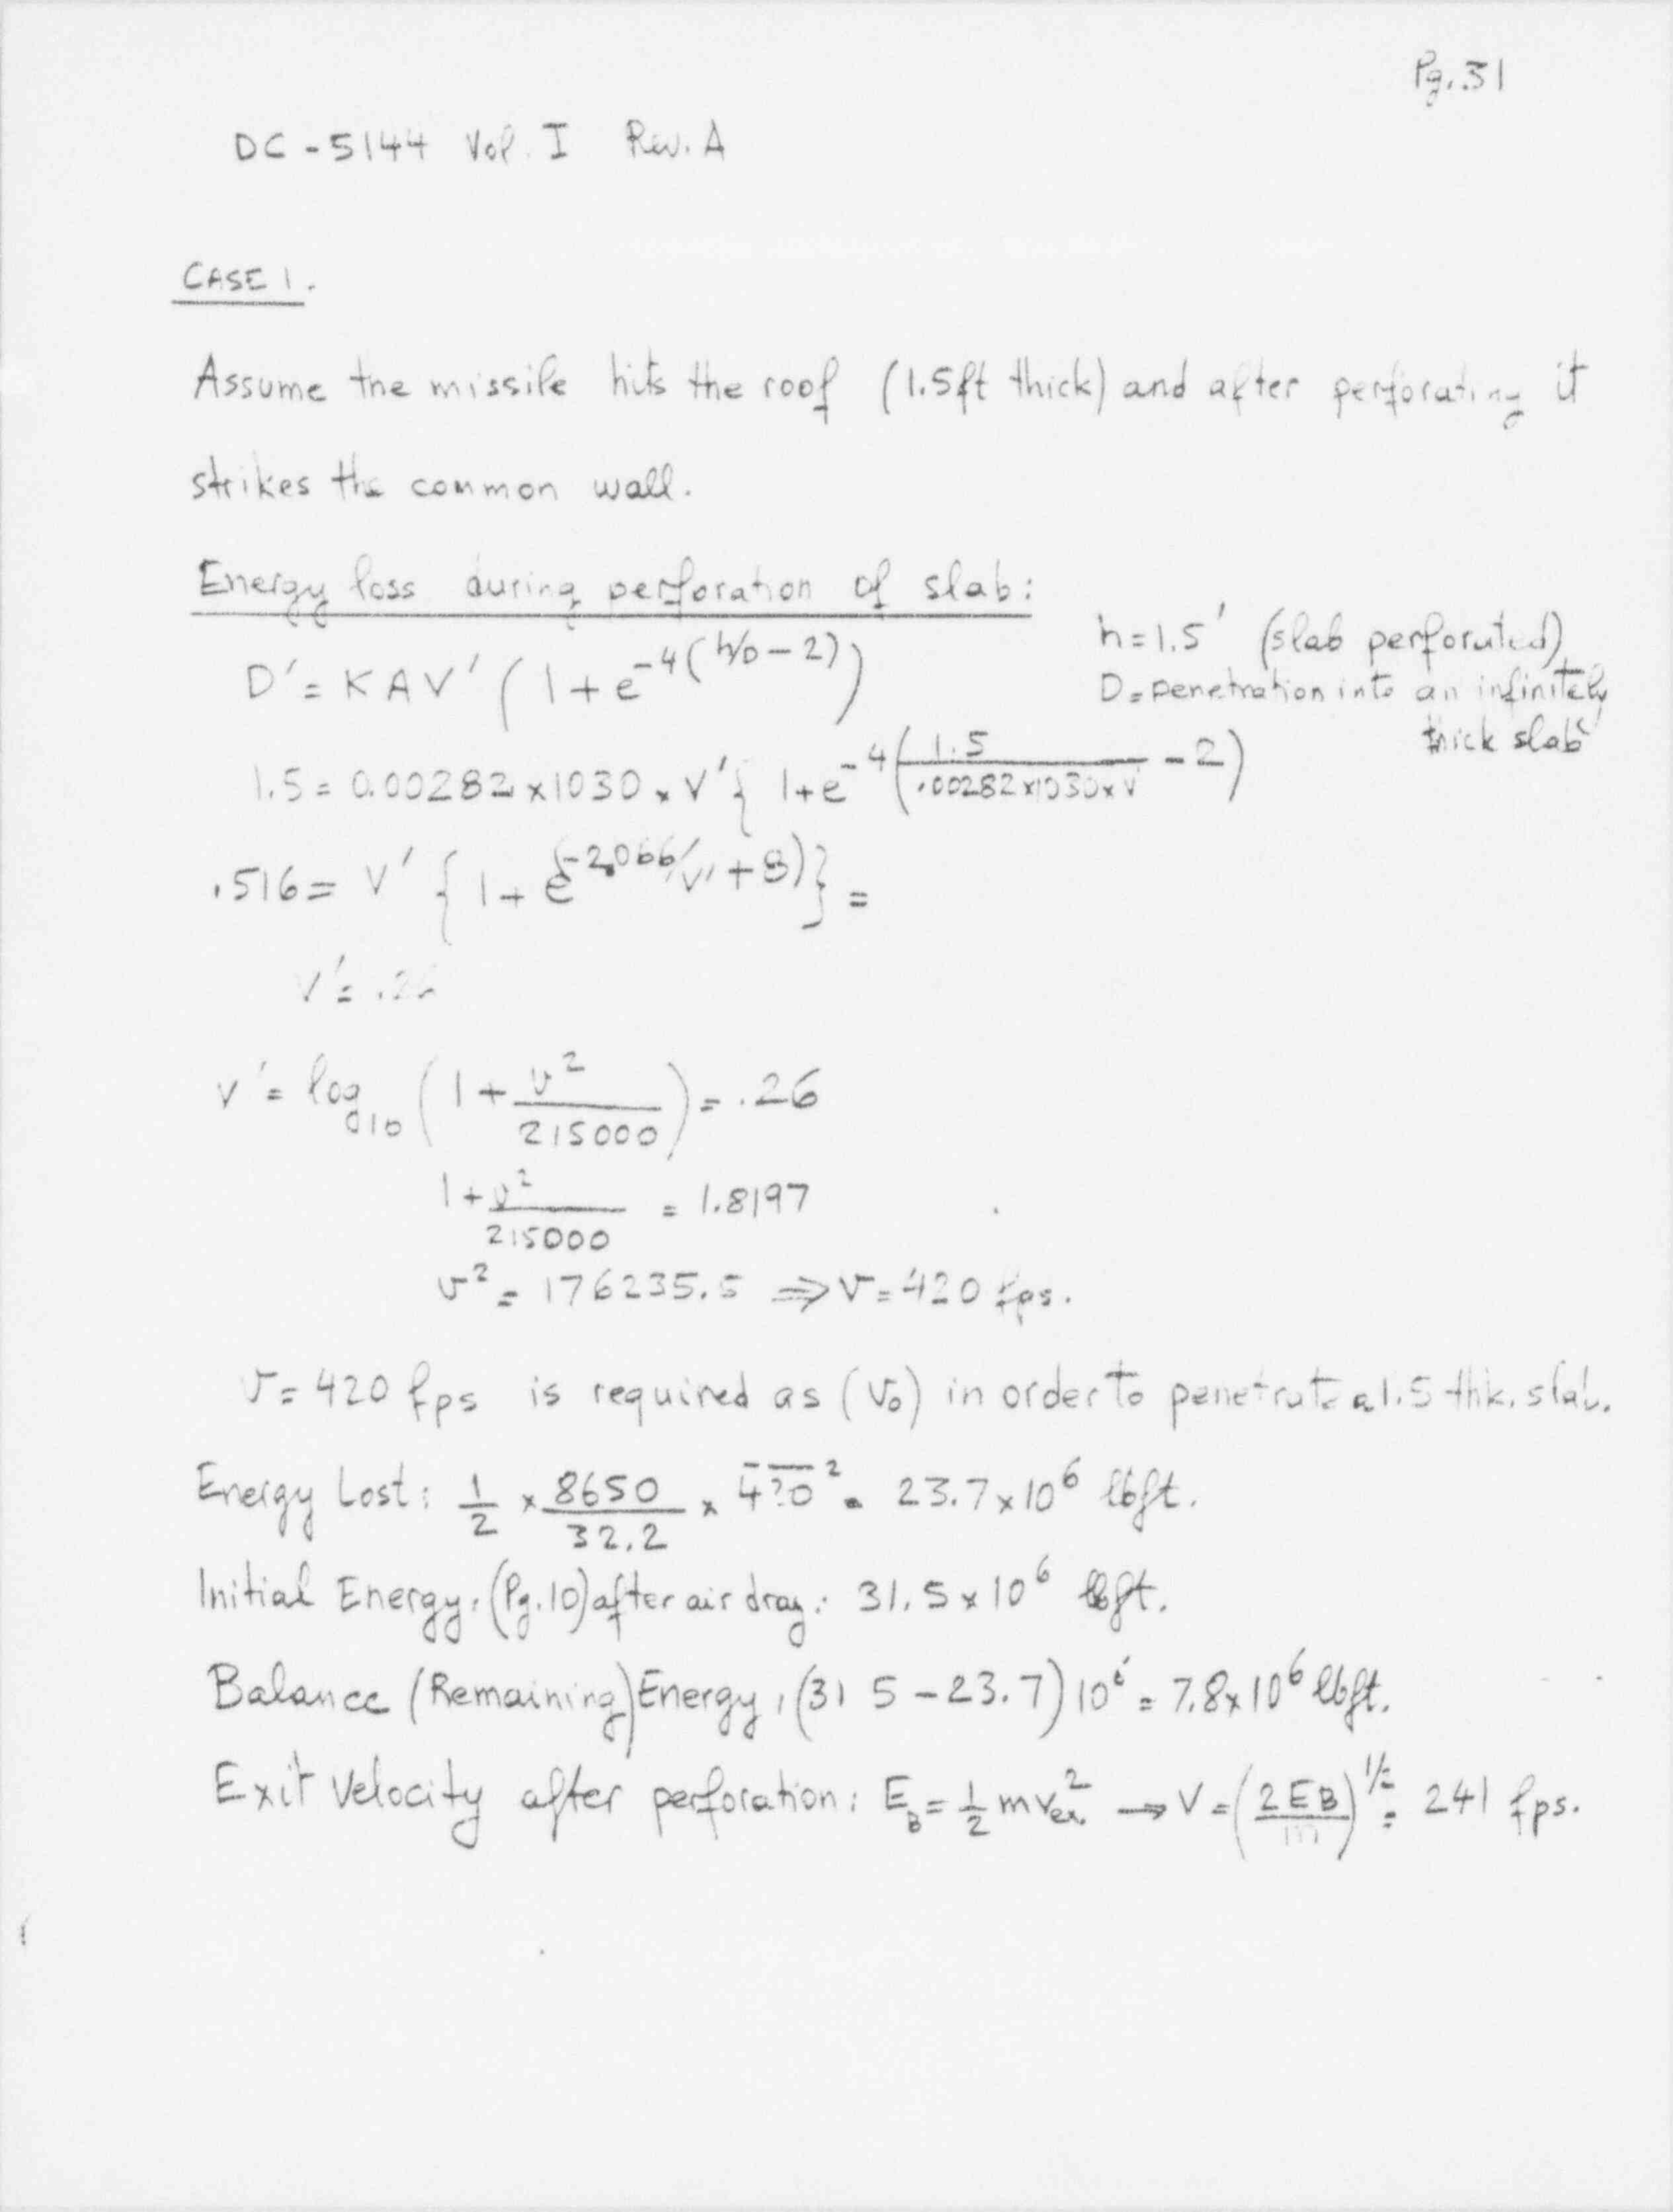 Pg. 31
DC-5144 Vol. I Rev. A
CASE 1.
Assume the missile hits the roof (1.5ft thick) and after perforating it
strikes the common wall.
Energy loss during perforation of slab:
D' = KAV' (1+e^-4(h/D-2))
h=1.5' (slab perforated)
D=penetration into an infinitely
thick slab
1.5 = 0.00282 x 1030 x V' { 1+e^-4(1.5/.00282x1030xV' - 2)
.516 = V' { 1+e^(-2.066/V'+8)} =
V' = .26
V' = log10 (1 + v²/215000) = .26
1 + v²/215000 = 1.8197
v² = 176235.5 ⇒ v = 420 fps.
v = 420 fps is required as (Vo) in order to penetrate a 1.5 thk. slab.
Energy Lost: 1/2 x 8650/32.2 x 420² = 23.7x10⁶ lbft.
Initial Energy: (Pg. 10) after air drag: 31.5x10⁶ lbft.
Balance (Remaining) Energy, (31 5 - 23.7) 10⁶ = 7.8x10⁶ lbft.
Exit Velocity after perforation: E_B = 1/2 m v_ex² → V = (2EB/m)^1/2 = 241 fps.